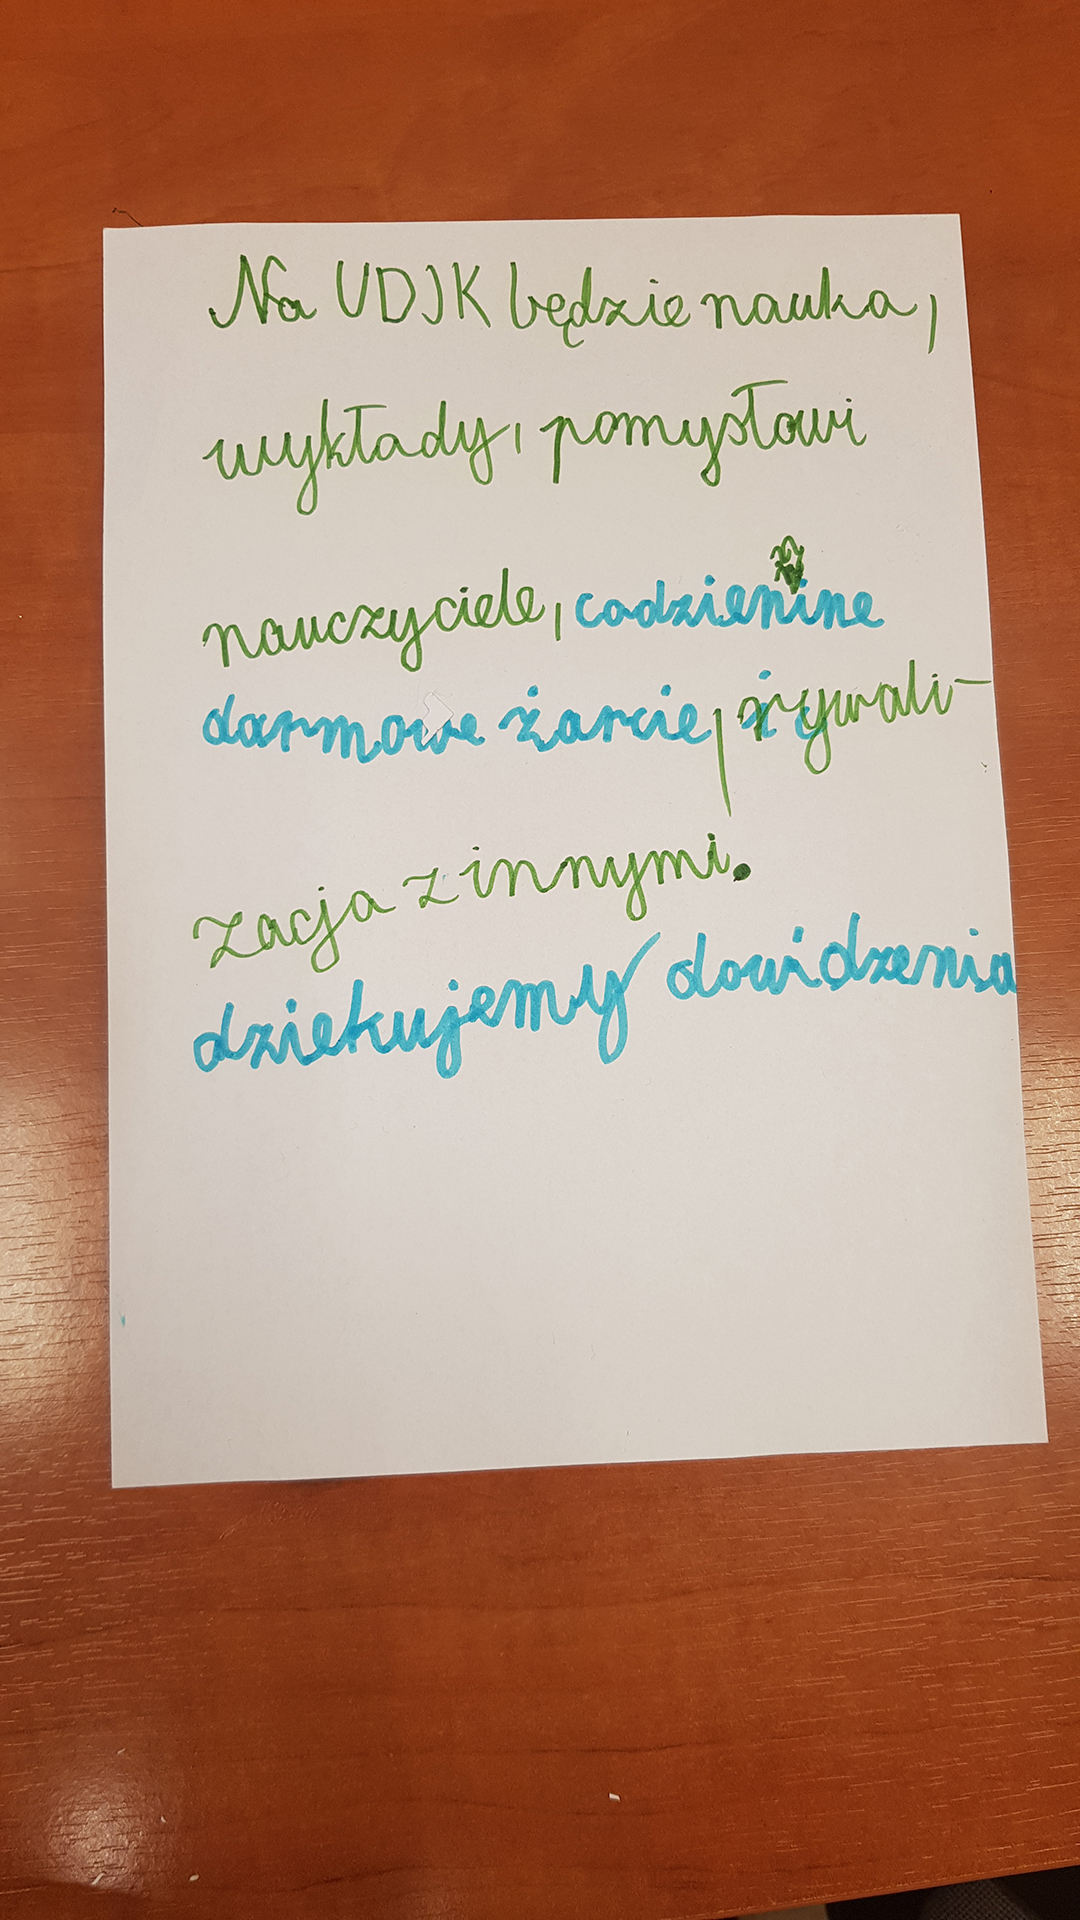 Na UDJK będzie nauka,
wykłady, pomysłowi
nauczyciele, codzienine
darmowe żarcie, rywali-
zacja z innymi.
dziekujemy dowidzenia